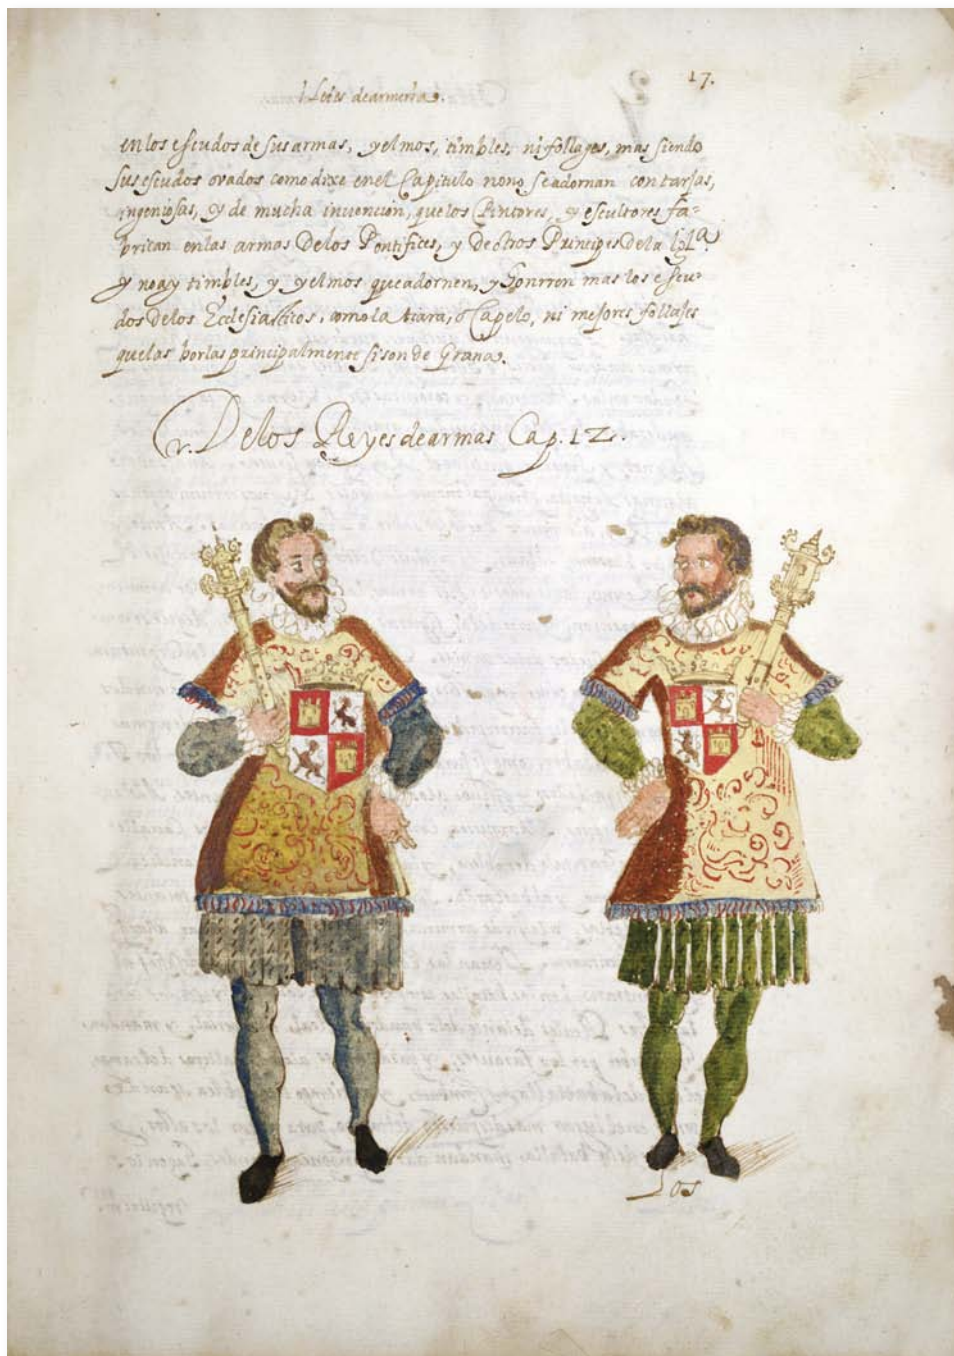 17.
Leies de armeria.
en los escudos de sus armas, yelmos, timbles, ni follages, mas siendo
sus escudos ovados como dixe en el Capitulo nono se adornan con tarjas,
ingeniosas, y de mucha invencion, que los Pintores, y escultores fa=
brican en las armas Delos Pontifices, y de otros Principes de la igla.
y no ay timbles, y yelmos que adornen, y honrren mas los escu-
dos delos Ecclesiasticos, como la tiara, ô Capelo, ni mejores follajes
que las borlas principalmente si son de Grana.
Delos Reyes de armas Cap. 12.
Los